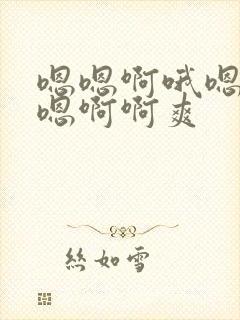 嗯嗯啊哦嗯
嗯啊啊爽
絲如雪